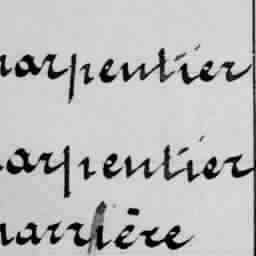 harpentier
harpentier
harrière